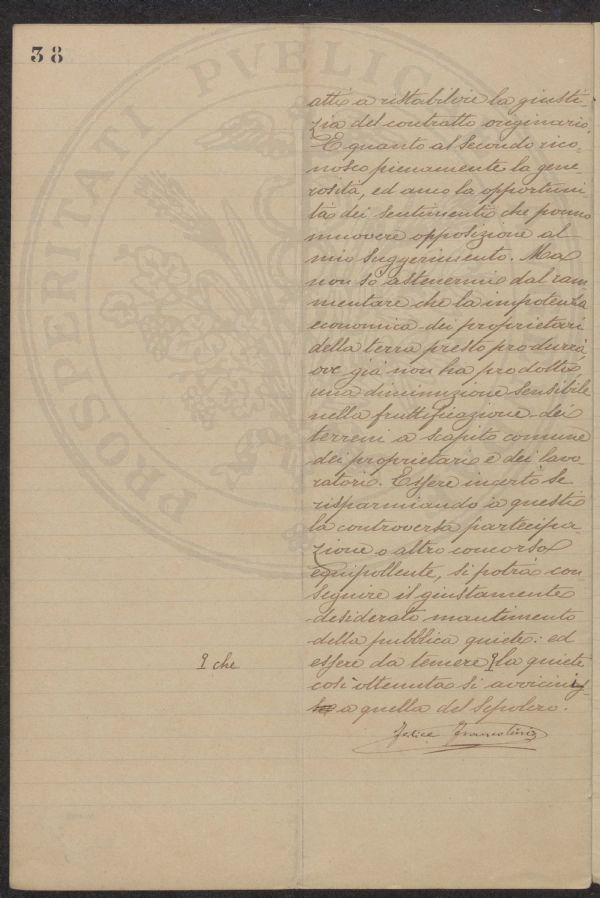 38
PROSPERITATI PVBLIC
atti a ristabilire la giusti-
zia del contratto originario.
E quanto al secondo rico-
nosco pienamente la gene-
rosità, ed anco la opportuni
tà dei sentimenti che ponno
muovere opposizione al
mio suggerimento. Ma
non so astenermi dal ram
mentare che la impotenza
economica dei proprietari
della terra presto produrrà,
ove già non ha prodotto,
una diminuzione sensibile
nella fruttificazione dei
terreni a scapito comune
dei proprietari e dei lavo-
ratori. Essere incerto se
risparmiando a questi
la controversa partecipa-
zione o altro concorso
equipollente, si potrà con
seguire il giustamente
desiderato mantimento
della pubblica quiete: ed
essere da temere la quiete
che
così ottenuta si avvicini
a quella del Sepolcro.
Felice